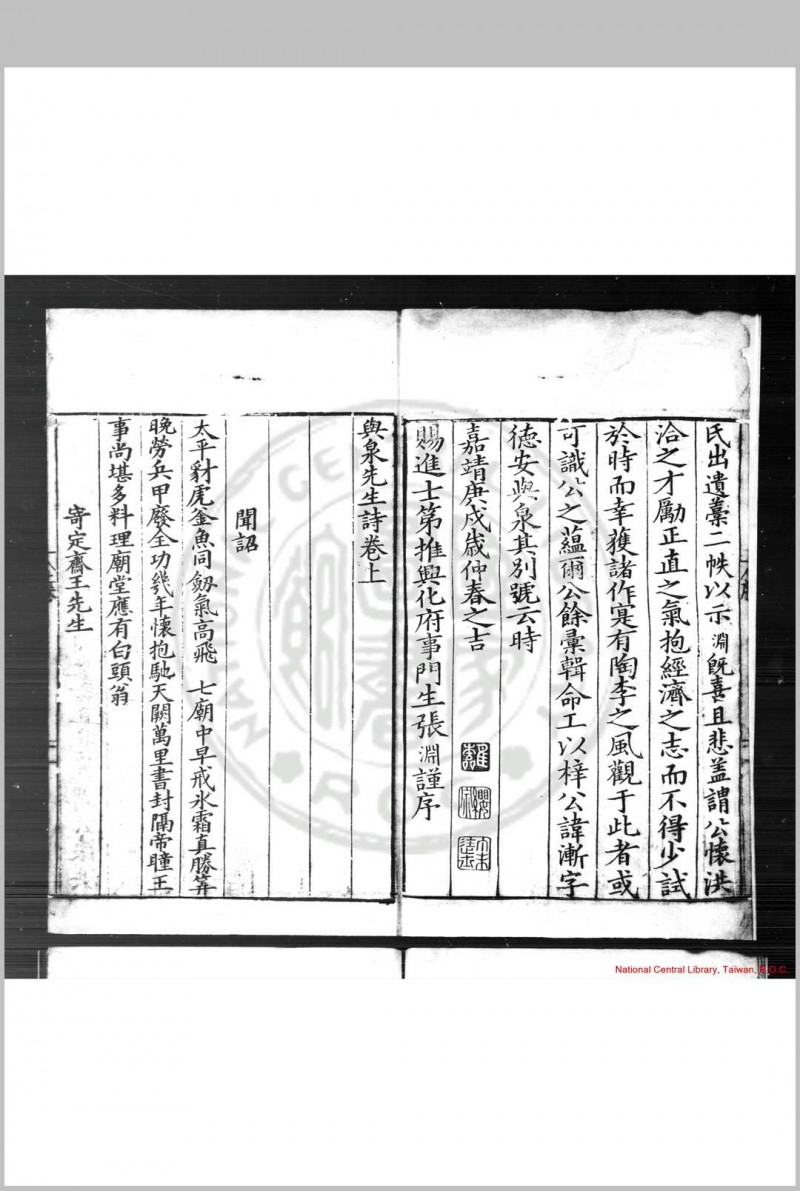 氏出遺藁二帙以示淵既喜且悲盖謂公懷洪
洽之才勵正直之氣抱經濟之志而不得少試
於時而幸獲諸作寔有陶李之風觀于此者或
可識公之蘊爾公餘彙輯命工以梓公諱漸字
德安與泉其別號云時
嘉靖庚戌歲仲春之吉
賜進士第推興化府事門生張淵謹序
與泉先生詩卷上
聞詔
太平豺虎釜魚同劔氣高飛七廟中早戒氷霜真勝筭
晚勞兵甲廢全功幾年懷抱馳天闕萬里書封隔帝曈王
事尚堪多料理廟堂應有白頭翁
寄定齋王先生
National Central Library, Taiwan, R.O.C.